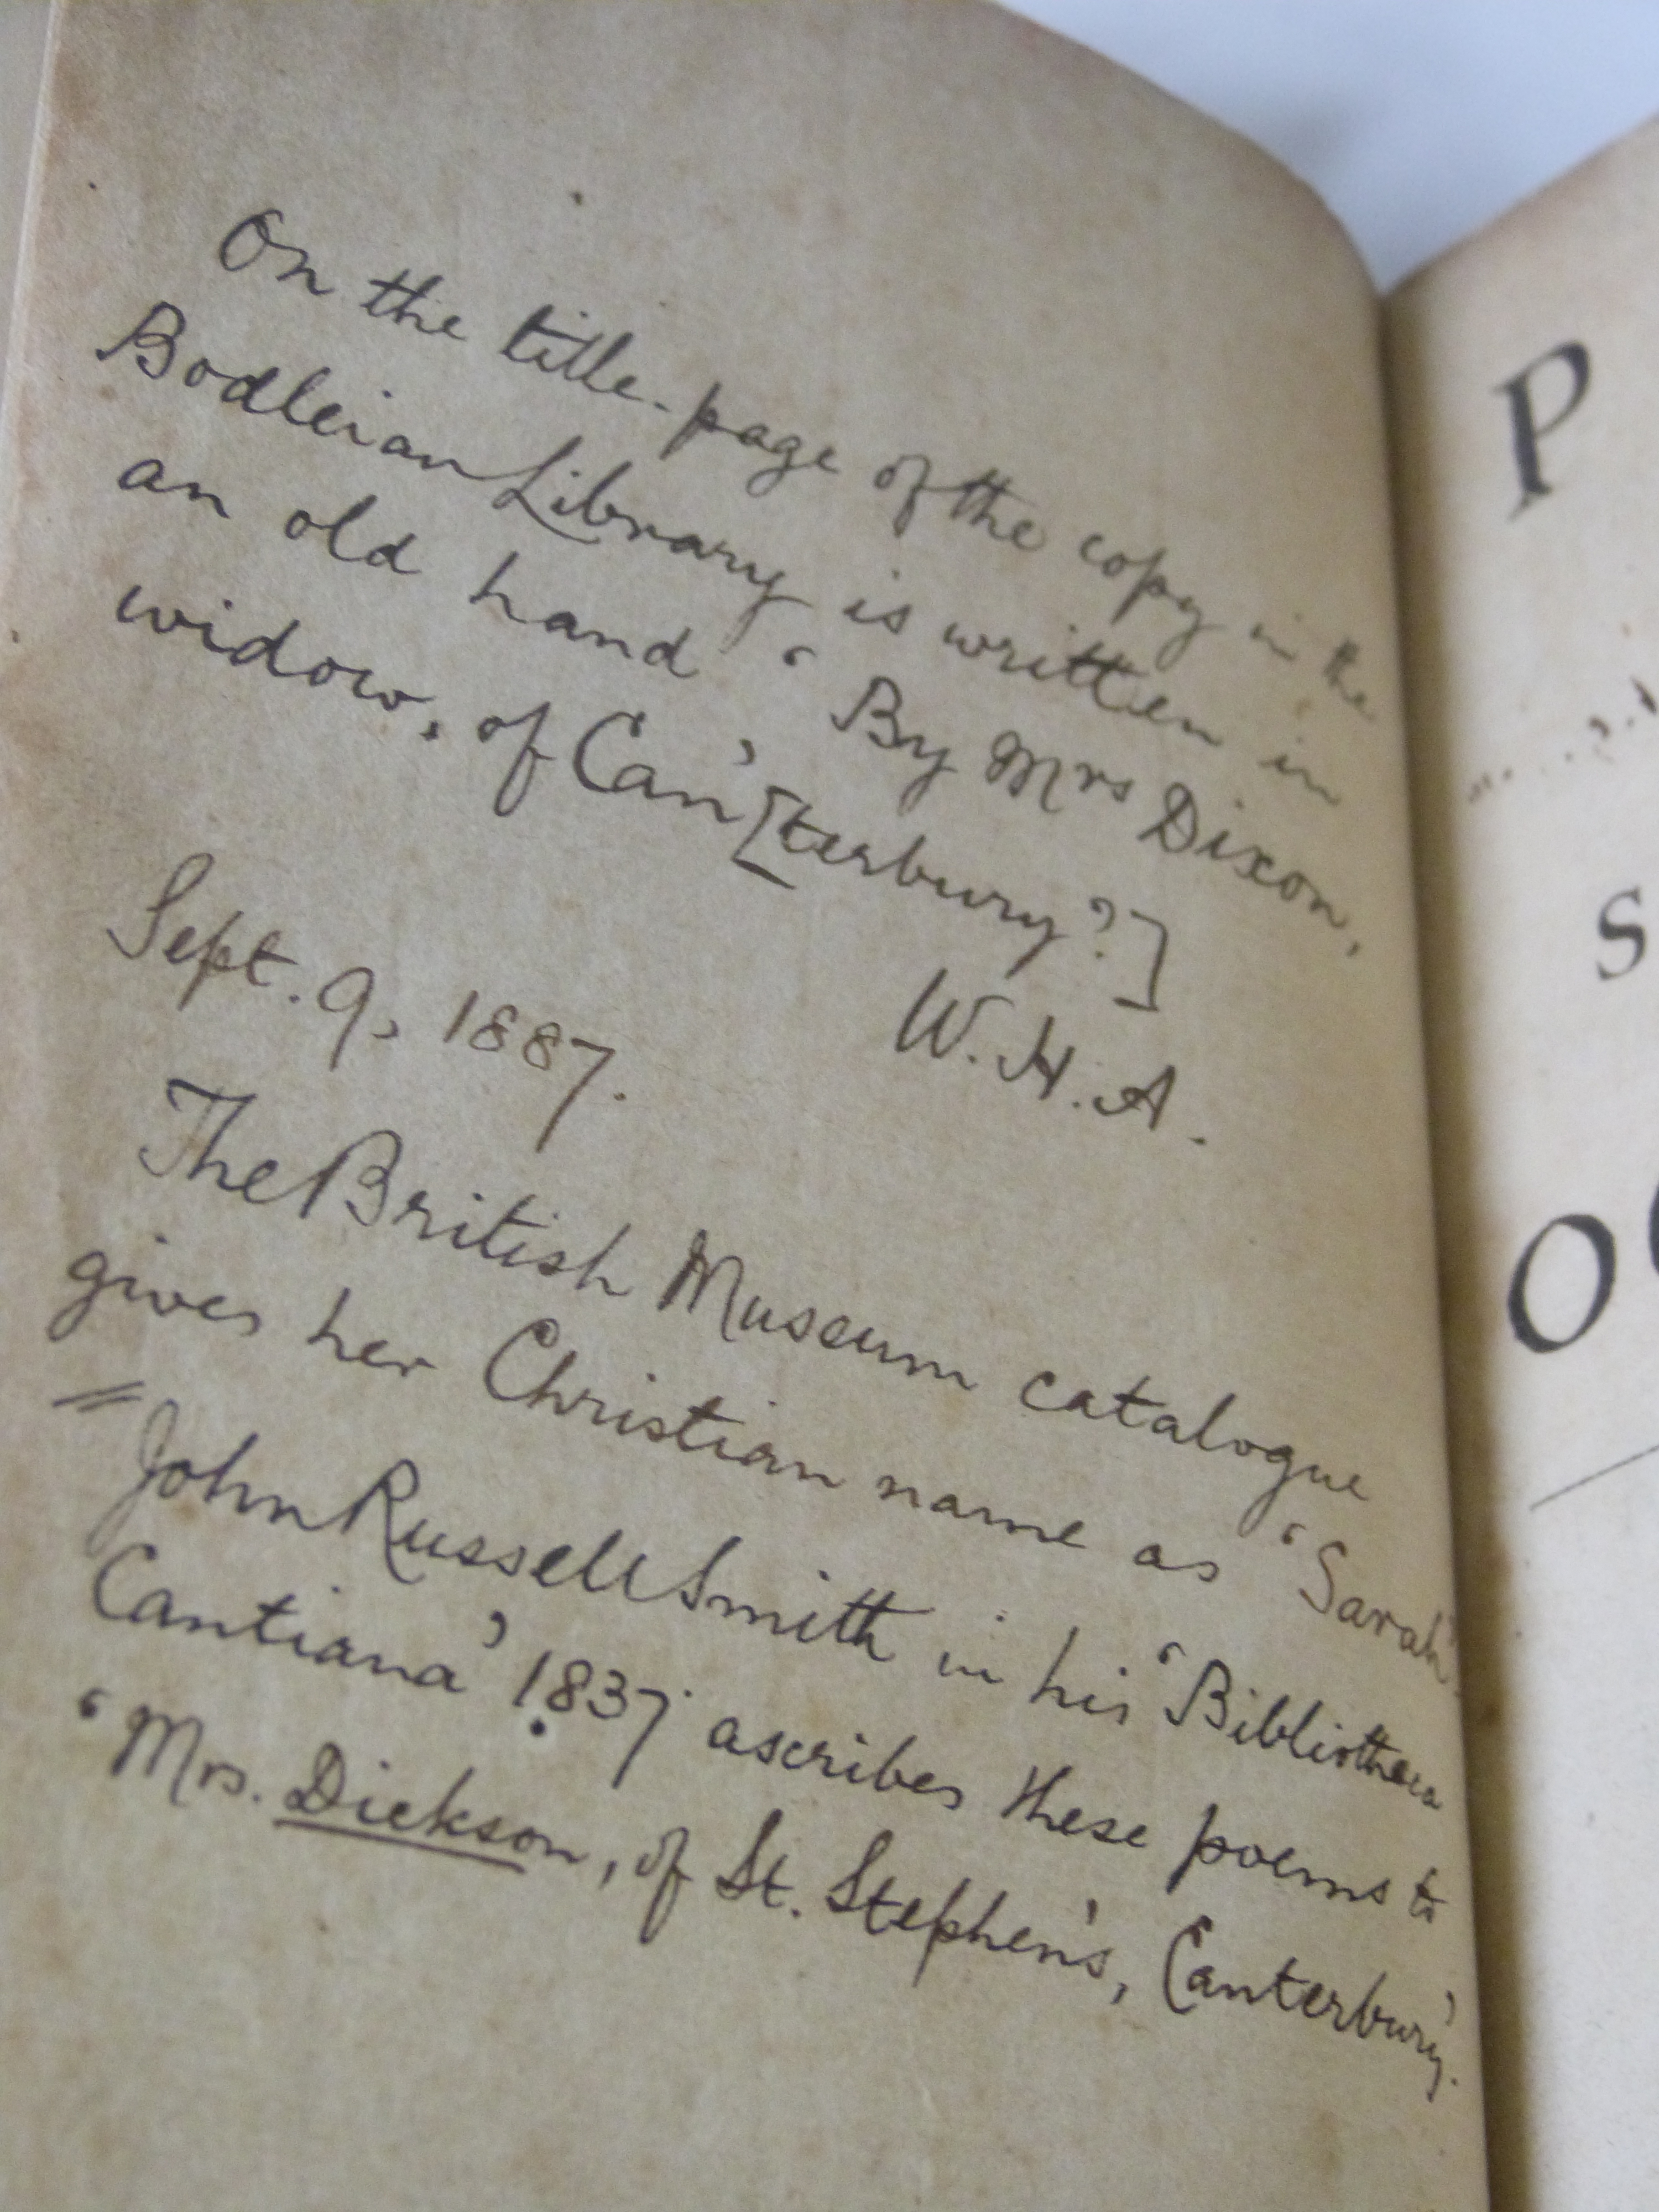 On the title-page of the copy in the
Bodleian Library is written in
an old hand ‘By Mrs Dixon,
widow, of Can’[terbury?]
W. H. A.
Sept. 9, 1887.
The British Museum catalogue
gives her Christian name as ‘Sarah’.
John Russell Smith in his ‘Bibliotheca
Cantiana’ 1837 ascribes these poems to
‘Mrs. Dickson, of St. Stephen's, Canterbury.’
P
S
O